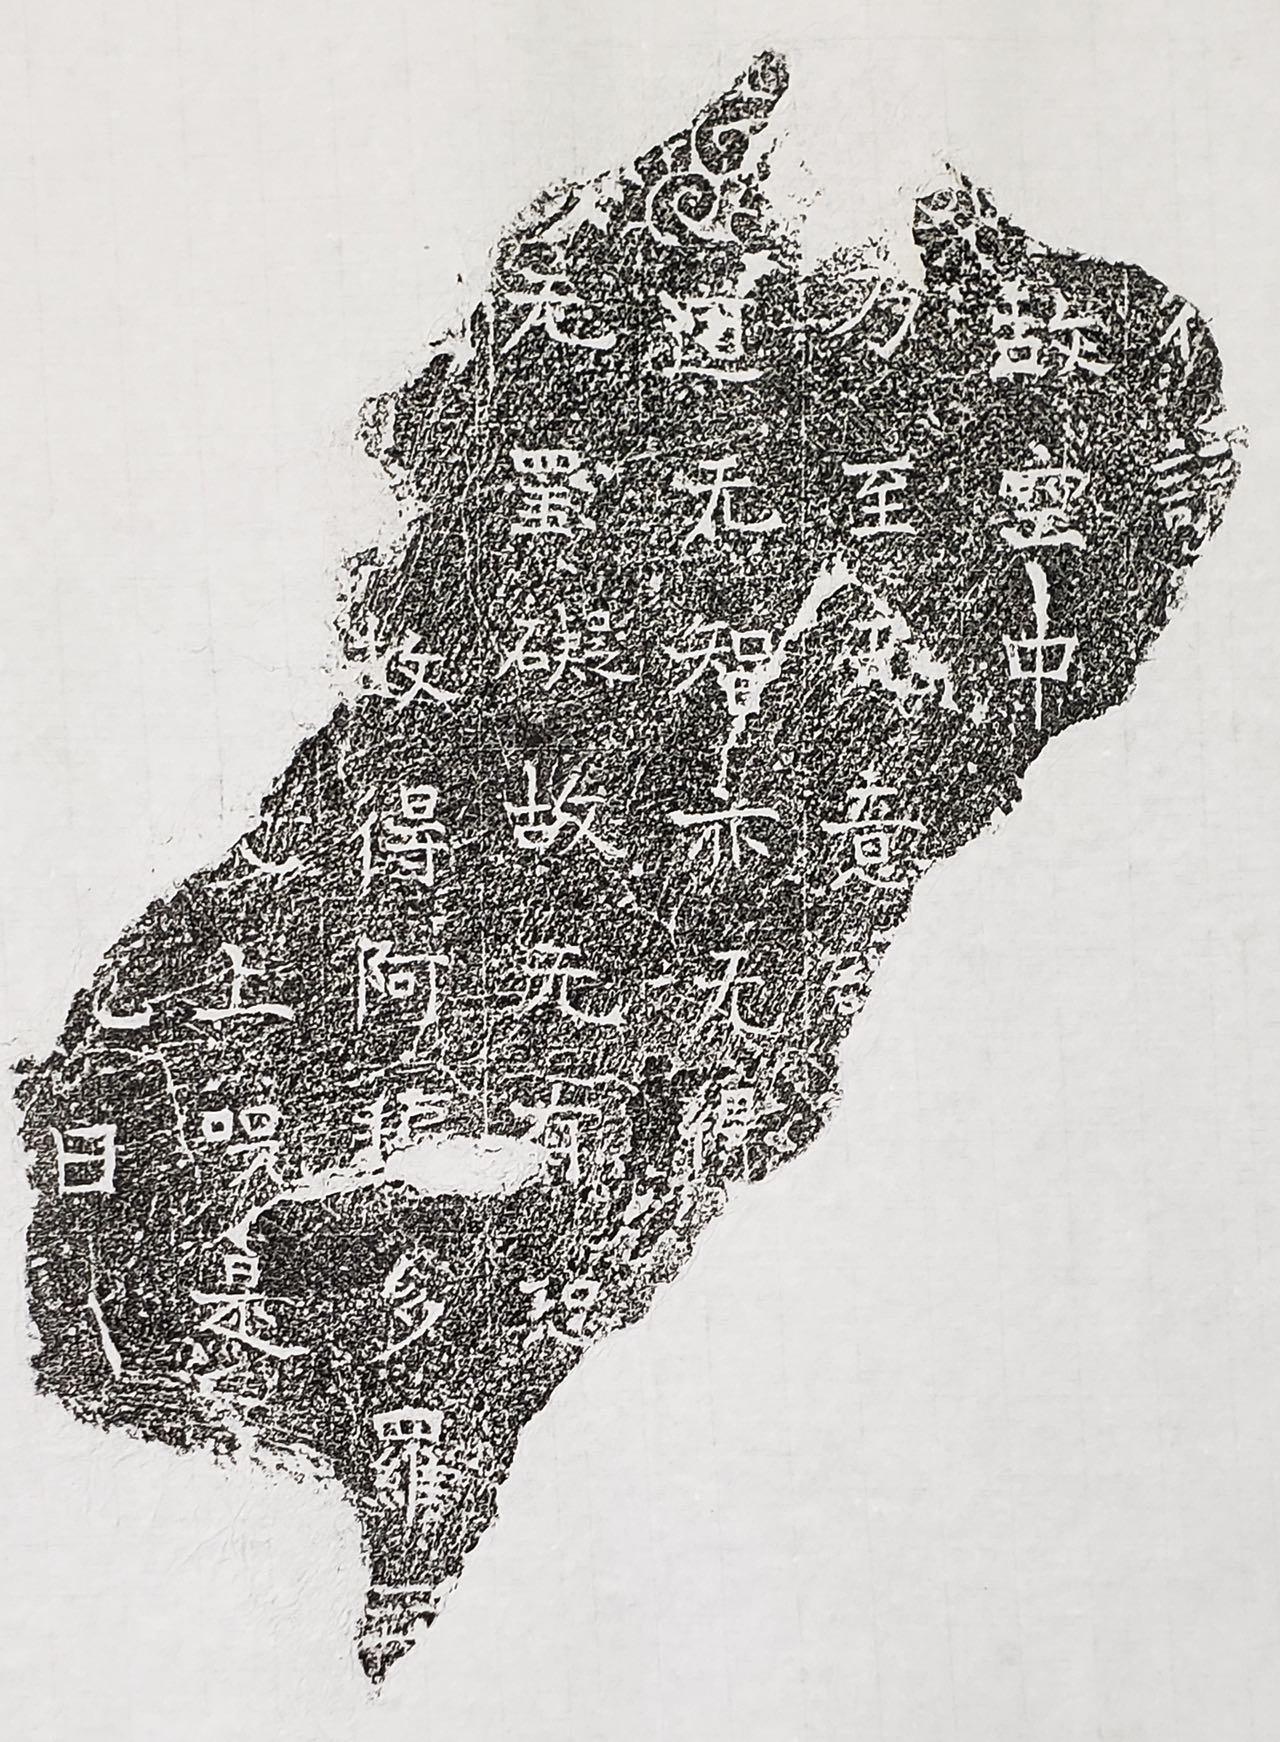 故空中
乃至无意
道无智亦无得
无罣礙故无有恐
故得阿耨多羅三
上呪是
曰